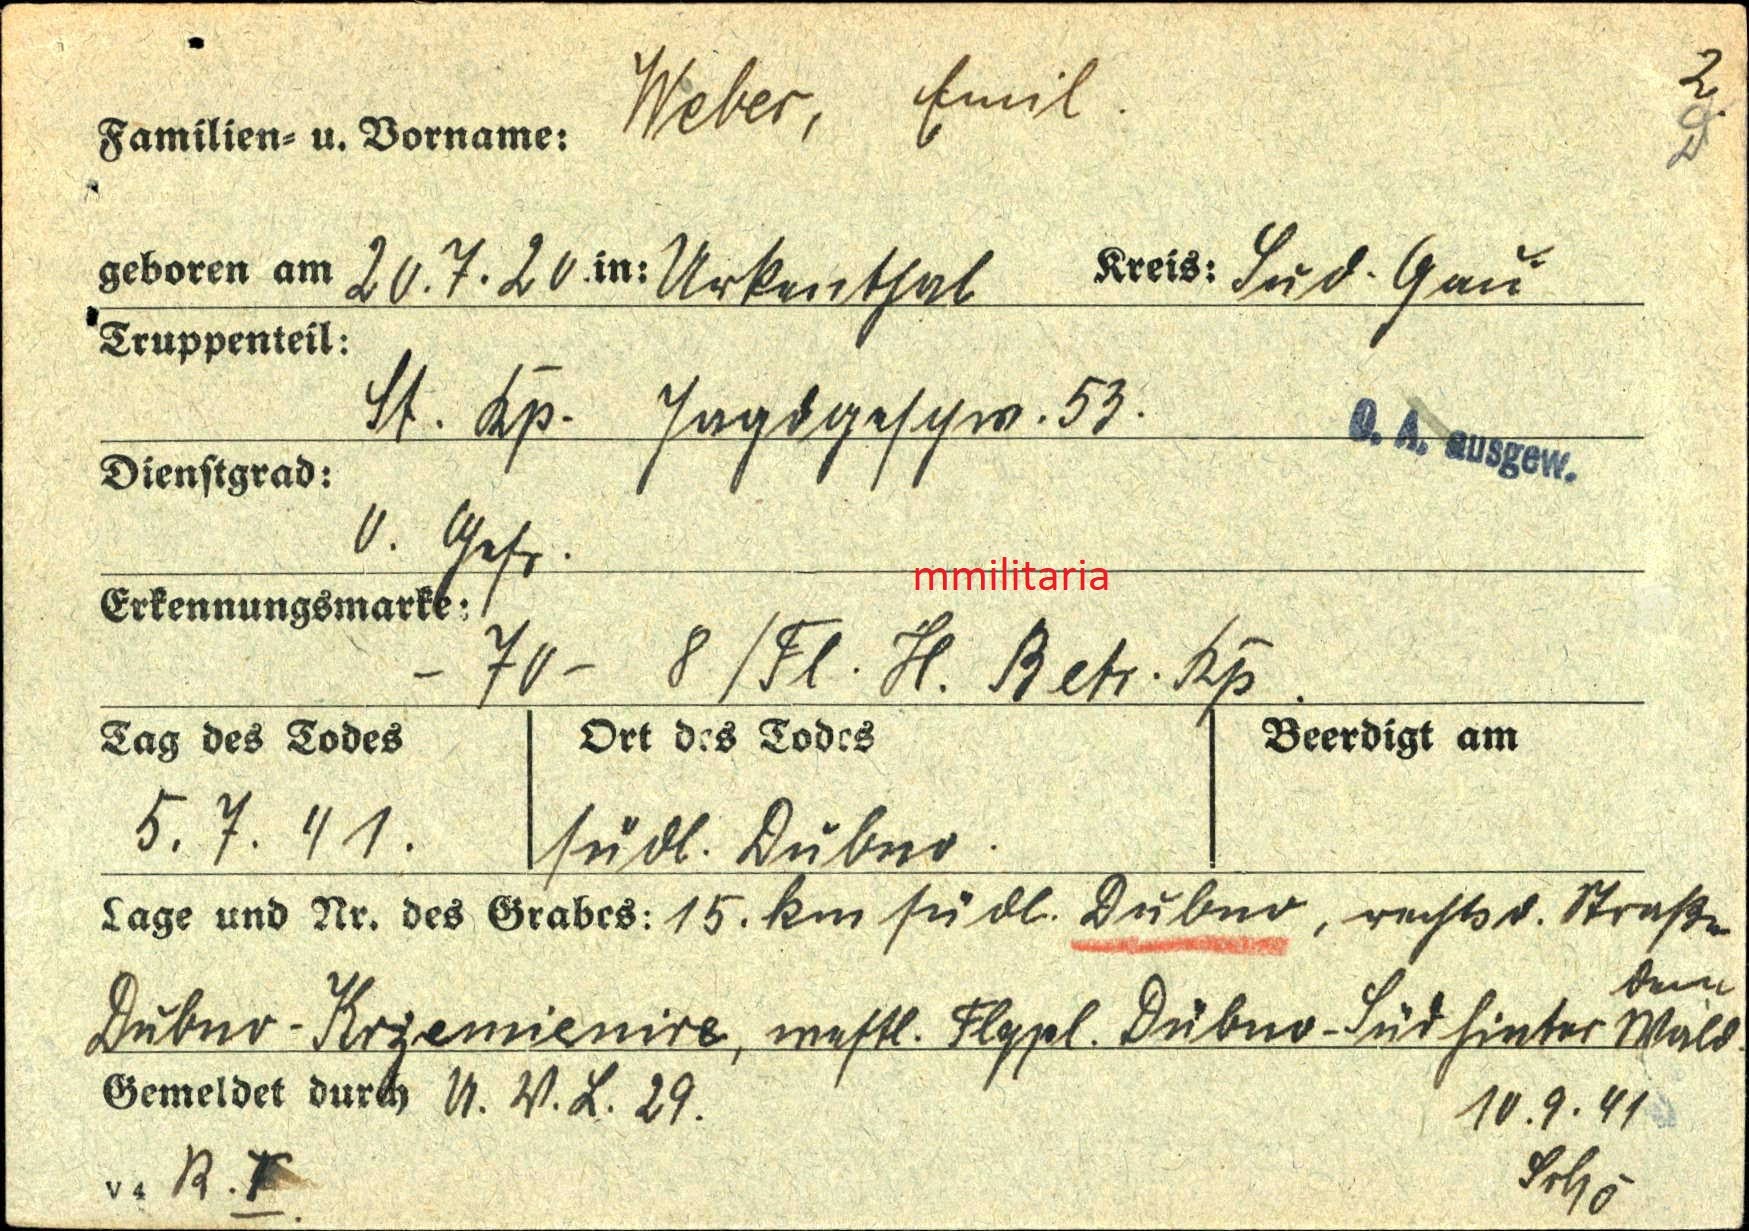 Weber, Emil.
2
D
Familien- u. Vorname:
geboren am 20.7.20 in: Urkenthal Kreis: Sud-Gau
Truppenteil:
St. Kp. Jagdgeschw. 53.
O. A. ausgew.
Dienstgrad:
O. Gefr.
mmilitaria
Erkennungsmarke:
- 70 - 8 /Fl. H. Betr. Kp.
Tag des Todes Ort des Todes Beerdigt am
5.7.41. südl. Dubno.
Lage und Nr. des Grabes: 15. km südl. Dubno, rechts d. Straße
dem
Dubno-Krzemienice, westl. Flgpl. Dubno-Süd hinter Wald.
Gemeldet durch U. V. L. 29.
10.9.41
V 4 R.